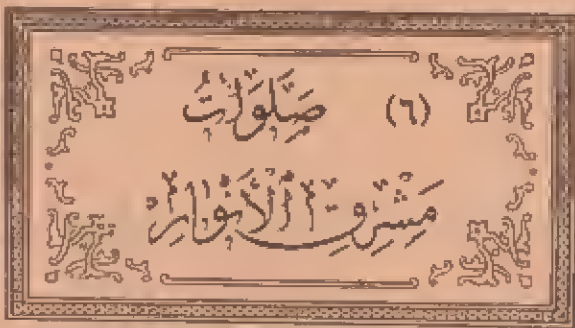 (٦) صَلَوَاتُ
مَشْرِقِ الْأَنْوَارِ